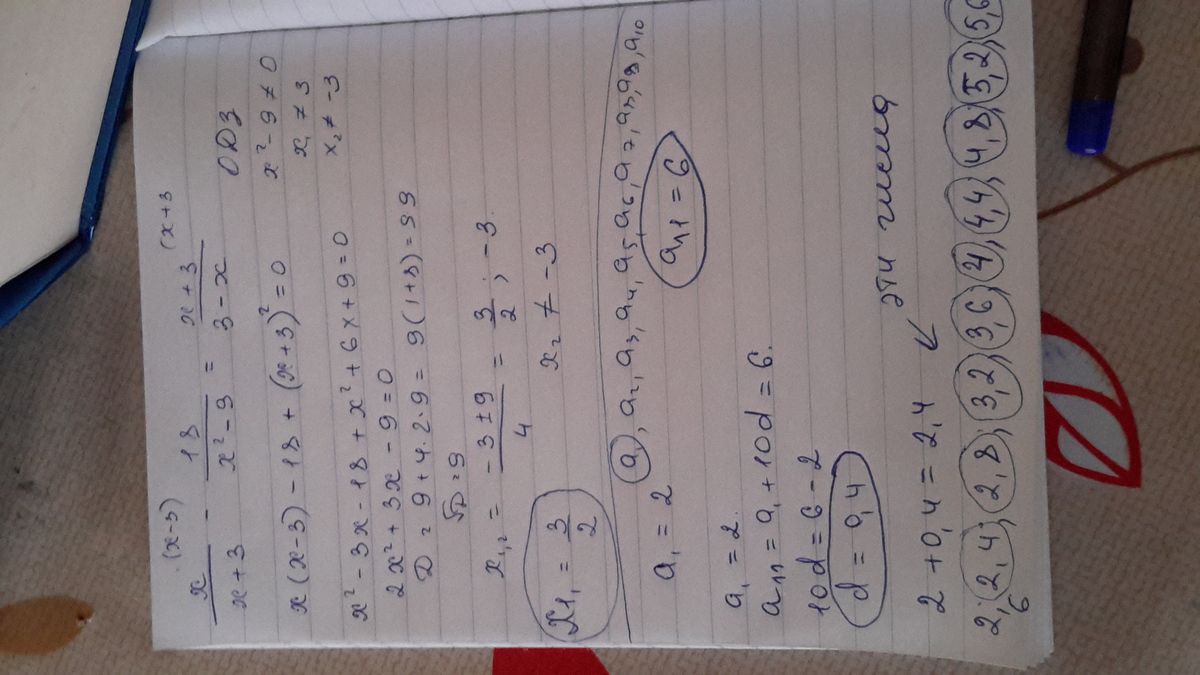 x/(x+3) ·(x-3) - 18/(x²-9) = (x+3)/(3-x) (x+3
ОДЗ
x(x-3)-18+(x+3)²=0
x²-9≠0
x₁≠3
x²-3x-18+x²+6x+9=0
x₂≠-3
2x²+3x-9=0
D=9+4·2·9=9(1+8)=99
√D=9
x₁,₂=(-3±9)/4=3/2; -3.
x₁,=3/2
x₂≠-3
a₁, a₂, a₃, a₄, a₅, a₆, a₇, a₈, a₁₀
a₁=2
a₁₁=6
a₁=2.
a₁₁=a₁+10d=6.
10d=6-2
d=0,4
эти числа
2+0,4=2,4 ↙
2; 2,4; 2,8; 3,2; 3,6; 4; 4,4; 4,8; 5,2; 5,6
6